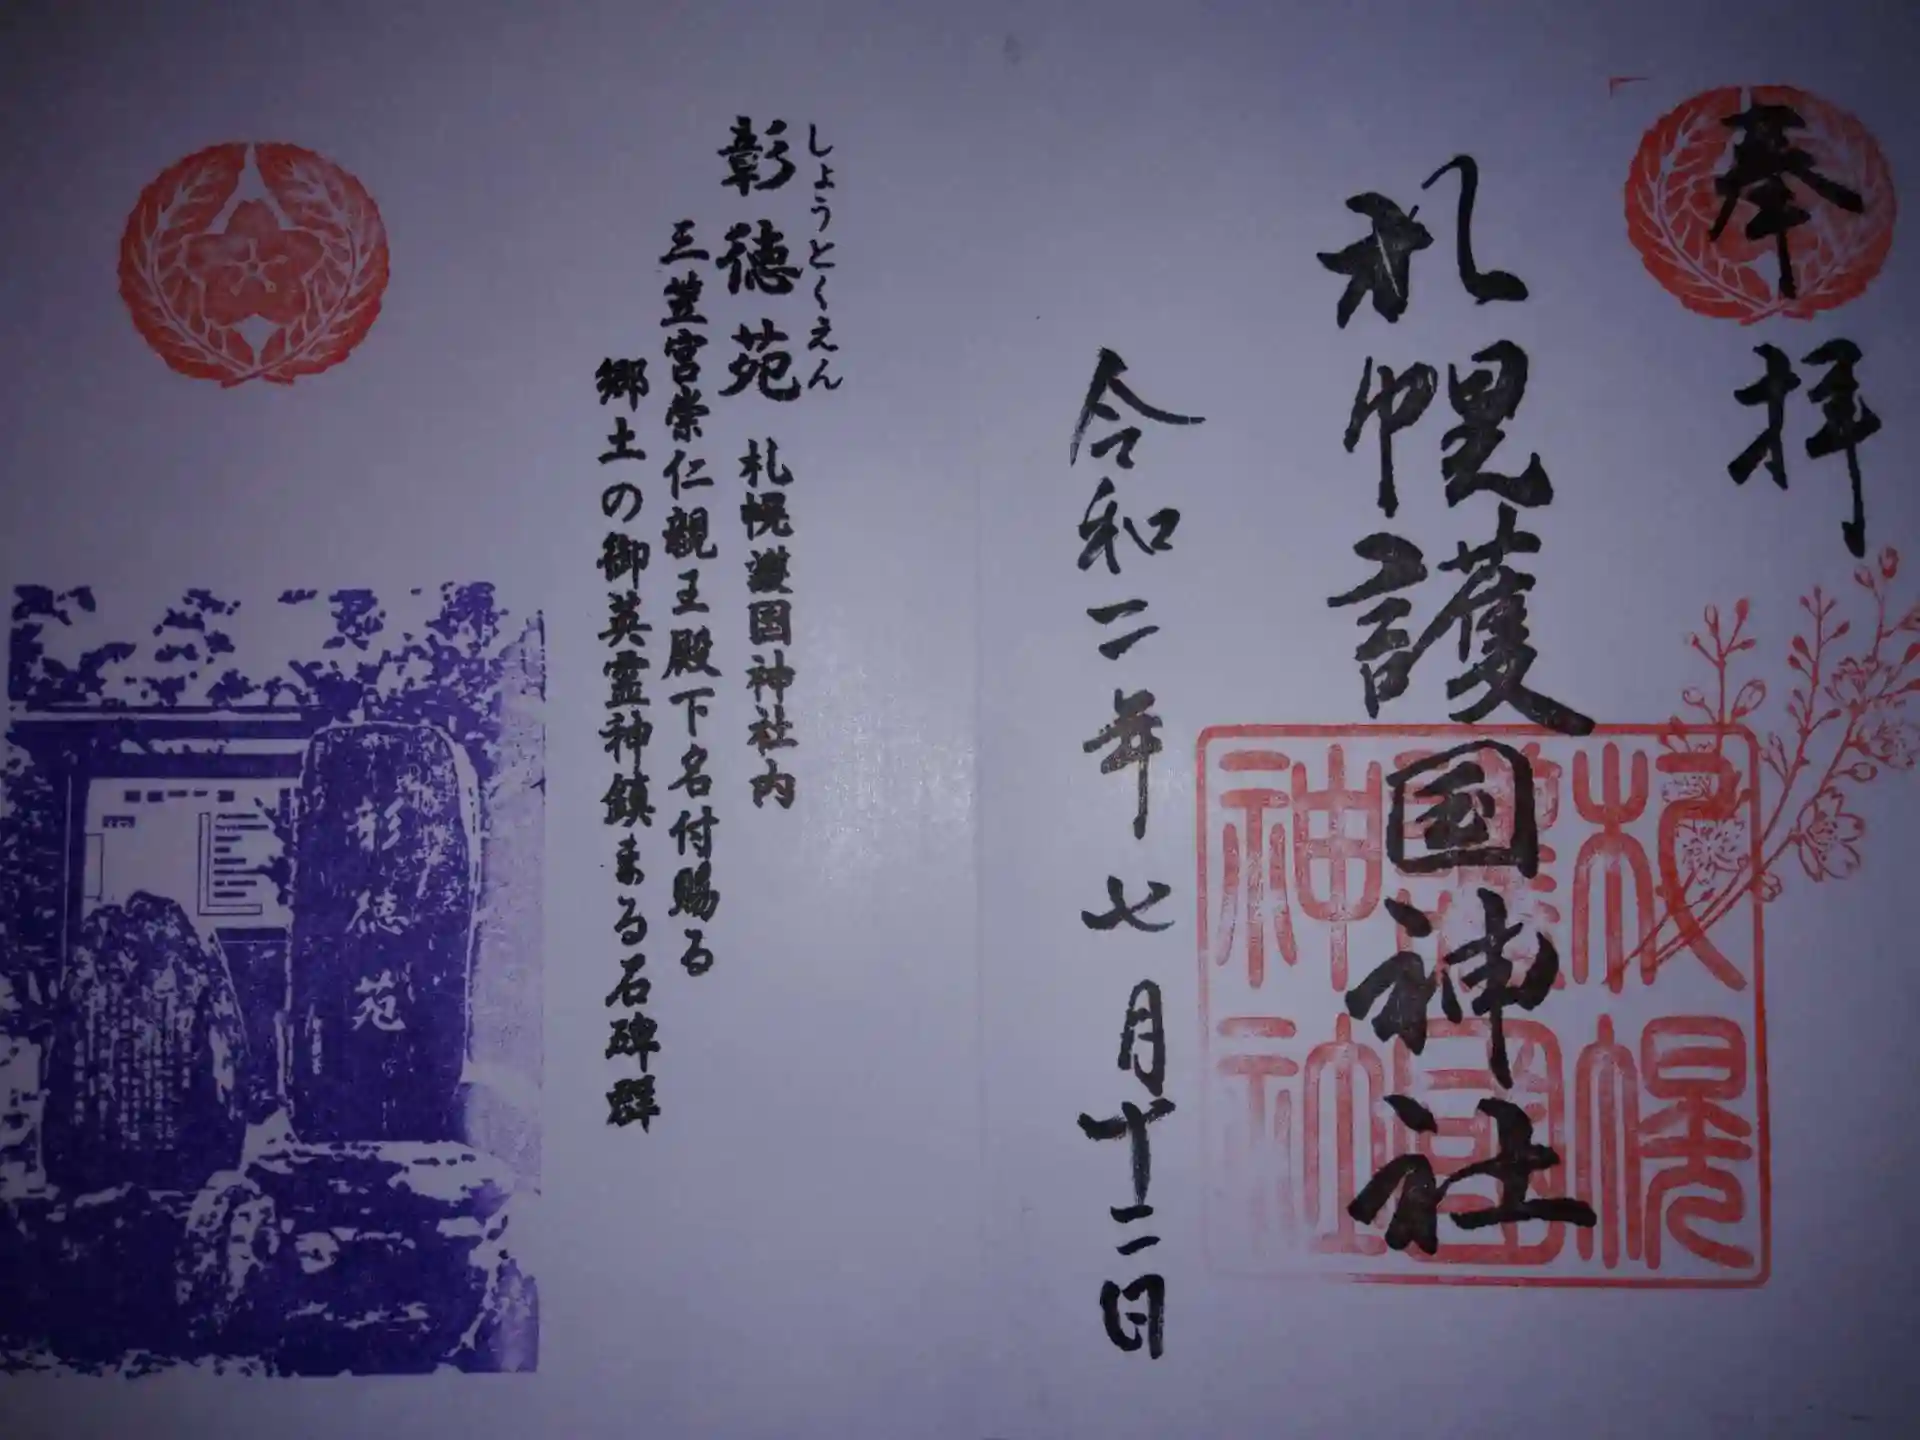 奉拝
札幌護国神社
札幌
護国
神社
令和二年七月十二日
しょうとくえん
彰徳苑 札幌護国神社内
三笠宮崇仁親王殿下名付賜る
郷土の御英霊神鎮まる石碑群
彰徳苑